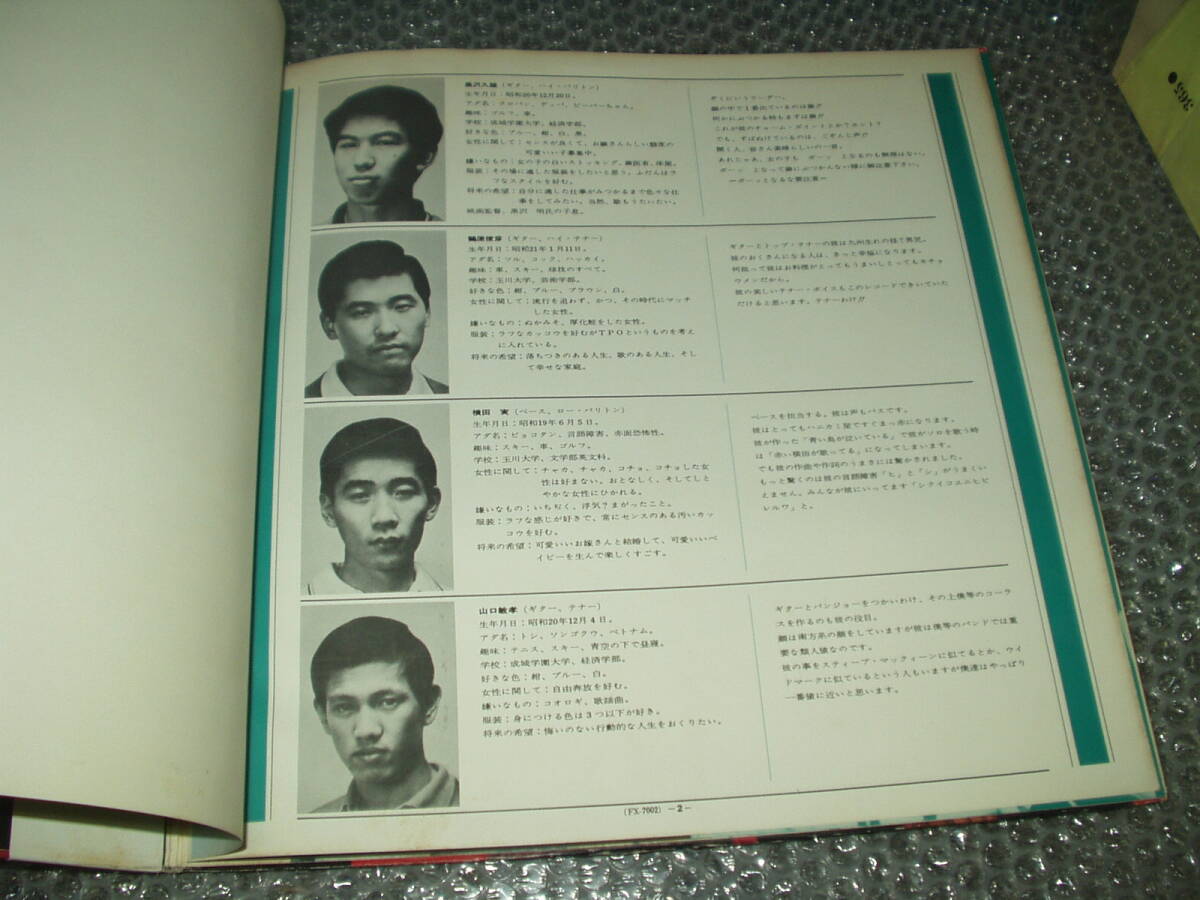 黒沢久雄(ギター、ハイ・バリトン)
生年月日:昭和20年12月20日。
アダ名:クロパン、デッパ、ビーバーちゃん。
趣味:ゴルフ、車。
学校:成城学園大学、経済学部。
好きな色:ブルー、紺、白、黒。
女性に関して:センスが良くて、お嬢さんらしい態度の
可愛いい子募集中。
嫌いなもの:女の子の白いストッキング、歯医者、床屋。
服装:その場に適した服装をしたいと思う。ふだんはラ
フなスタイルを好む。
将来の希望:自分に適した仕事がみつかるまで色々な仕
事をしてみたい。当然、歌もうたいたい。
映画監督、黒沢 明氏の子息。
ぞくにいうリーダー。
顔の中で1番出ているのは歯!!
何かにぶつかる時もまずは歯!!
これが彼のチャーム・ポイントとか?ホント?
でも、すばぬけているのは、ごぞんじ声!!
聞く人、皆さん素晴らしいの一言。
あれじゃぁ、女の子も ボーッ となるのも無理はない。
ボーッ となって歯にぶつかんない様に御注意下さい。
ーボーッとなるな要注意ー
鶴原俊彦(ギター、ハイ・テナー)
生年月日:昭和21年1月11日。
アダ名:ツル、コック、ハッカイ。
趣味:車、スキー、球技のすべて。
学校:玉川大学、芸術学部。
好きな色:紺、ブルー、ブラウン、白。
女性に関して:流行を追わず、かつ、その時代にマッチ
した女性。
嫌いなもの:ぬかみそ、厚化粧をした女性。
服装:ラフなカッコウを好むがTPOというものを考え
に入れている。
将来の希望:落ちつきのある人生、歌のある人生、そし
て幸せな家庭。
ギターとトップ・テナーの彼は九州生れの怪て男児。
彼のおくさんになる人は、きっと幸福になります。
何故って彼はお料理がとってもうまいしとってもキチョ
ウメンだから。
彼の美しいテナー・ボイスもこのレコードできいていた
だけると思います。テナーわけ!!
横田 実(ベース、ロー・バリトン)
生年月日:昭和19年6月5日。
アダ名:ピョコタン、言語障害、赤面恐怖性。
趣味:スキー、車、ゴルフ。
学校:玉川大学、文学部英文科。
女性に関して:チャカ、チャカ、コチョ、コチョした女
性は好まない。おとなしく、そしてしと
やかな女性にひかれる。
嫌いなもの:いちぢく、浮気?まがったこと。
服装:ラフな感じが好きで、常にセンスのある汚いカッ
コウを好む。
将来の希望:可愛いいお嫁さんと結婚して、可愛いいベ
イビーを生んで楽しくすごす。
ベースを担当する。彼は声もバスです。
彼はとってもハニカミ屋ですぐまっ赤になります。
彼が作った「青い鳥が泣いている」で彼がソロを歌う時
は「赤い横田が歌ってる」になってしまいます。
でも彼の作曲や作詞のうまさには驚かされました。
もっと驚くのは彼の言語障害「ヒ」と「シ」がうまくい
えません。みんなが彼にいってます「シクイコユニヒビ
レルワ」と。
山口敏孝(ギター、テナー)
生年月日:昭和20年12月4日。
アダ名:トシ、ソンゴクウ、ベトナム。
趣味:テニス、スキー、青空の下で昼寝。
学校:成城学園大学、経済学部。
好きな色:紺、ブルー、白。
女性に関して:自由奔放を好む。
嫌いなもの:コオロギ、歌謡曲。
服装:身につける色は3つ以下が好き。
将来の希望:悔いのない行動的な人生をおくりたい。
ギターとバンジョーをつかいわけ、その上僕等のコーラ
スを作るのも彼の役目。
顔は南方系の顔をしていますが彼は僕等のバンドでは重
要な類人猿なのです。
彼の事をスティーブ・マックィーンに似てるとか、ウイ
ドマークに似ているという人もいますが僕達はやっぱり
一番猿に近いと思います。
(FX-7002) −2−
365●